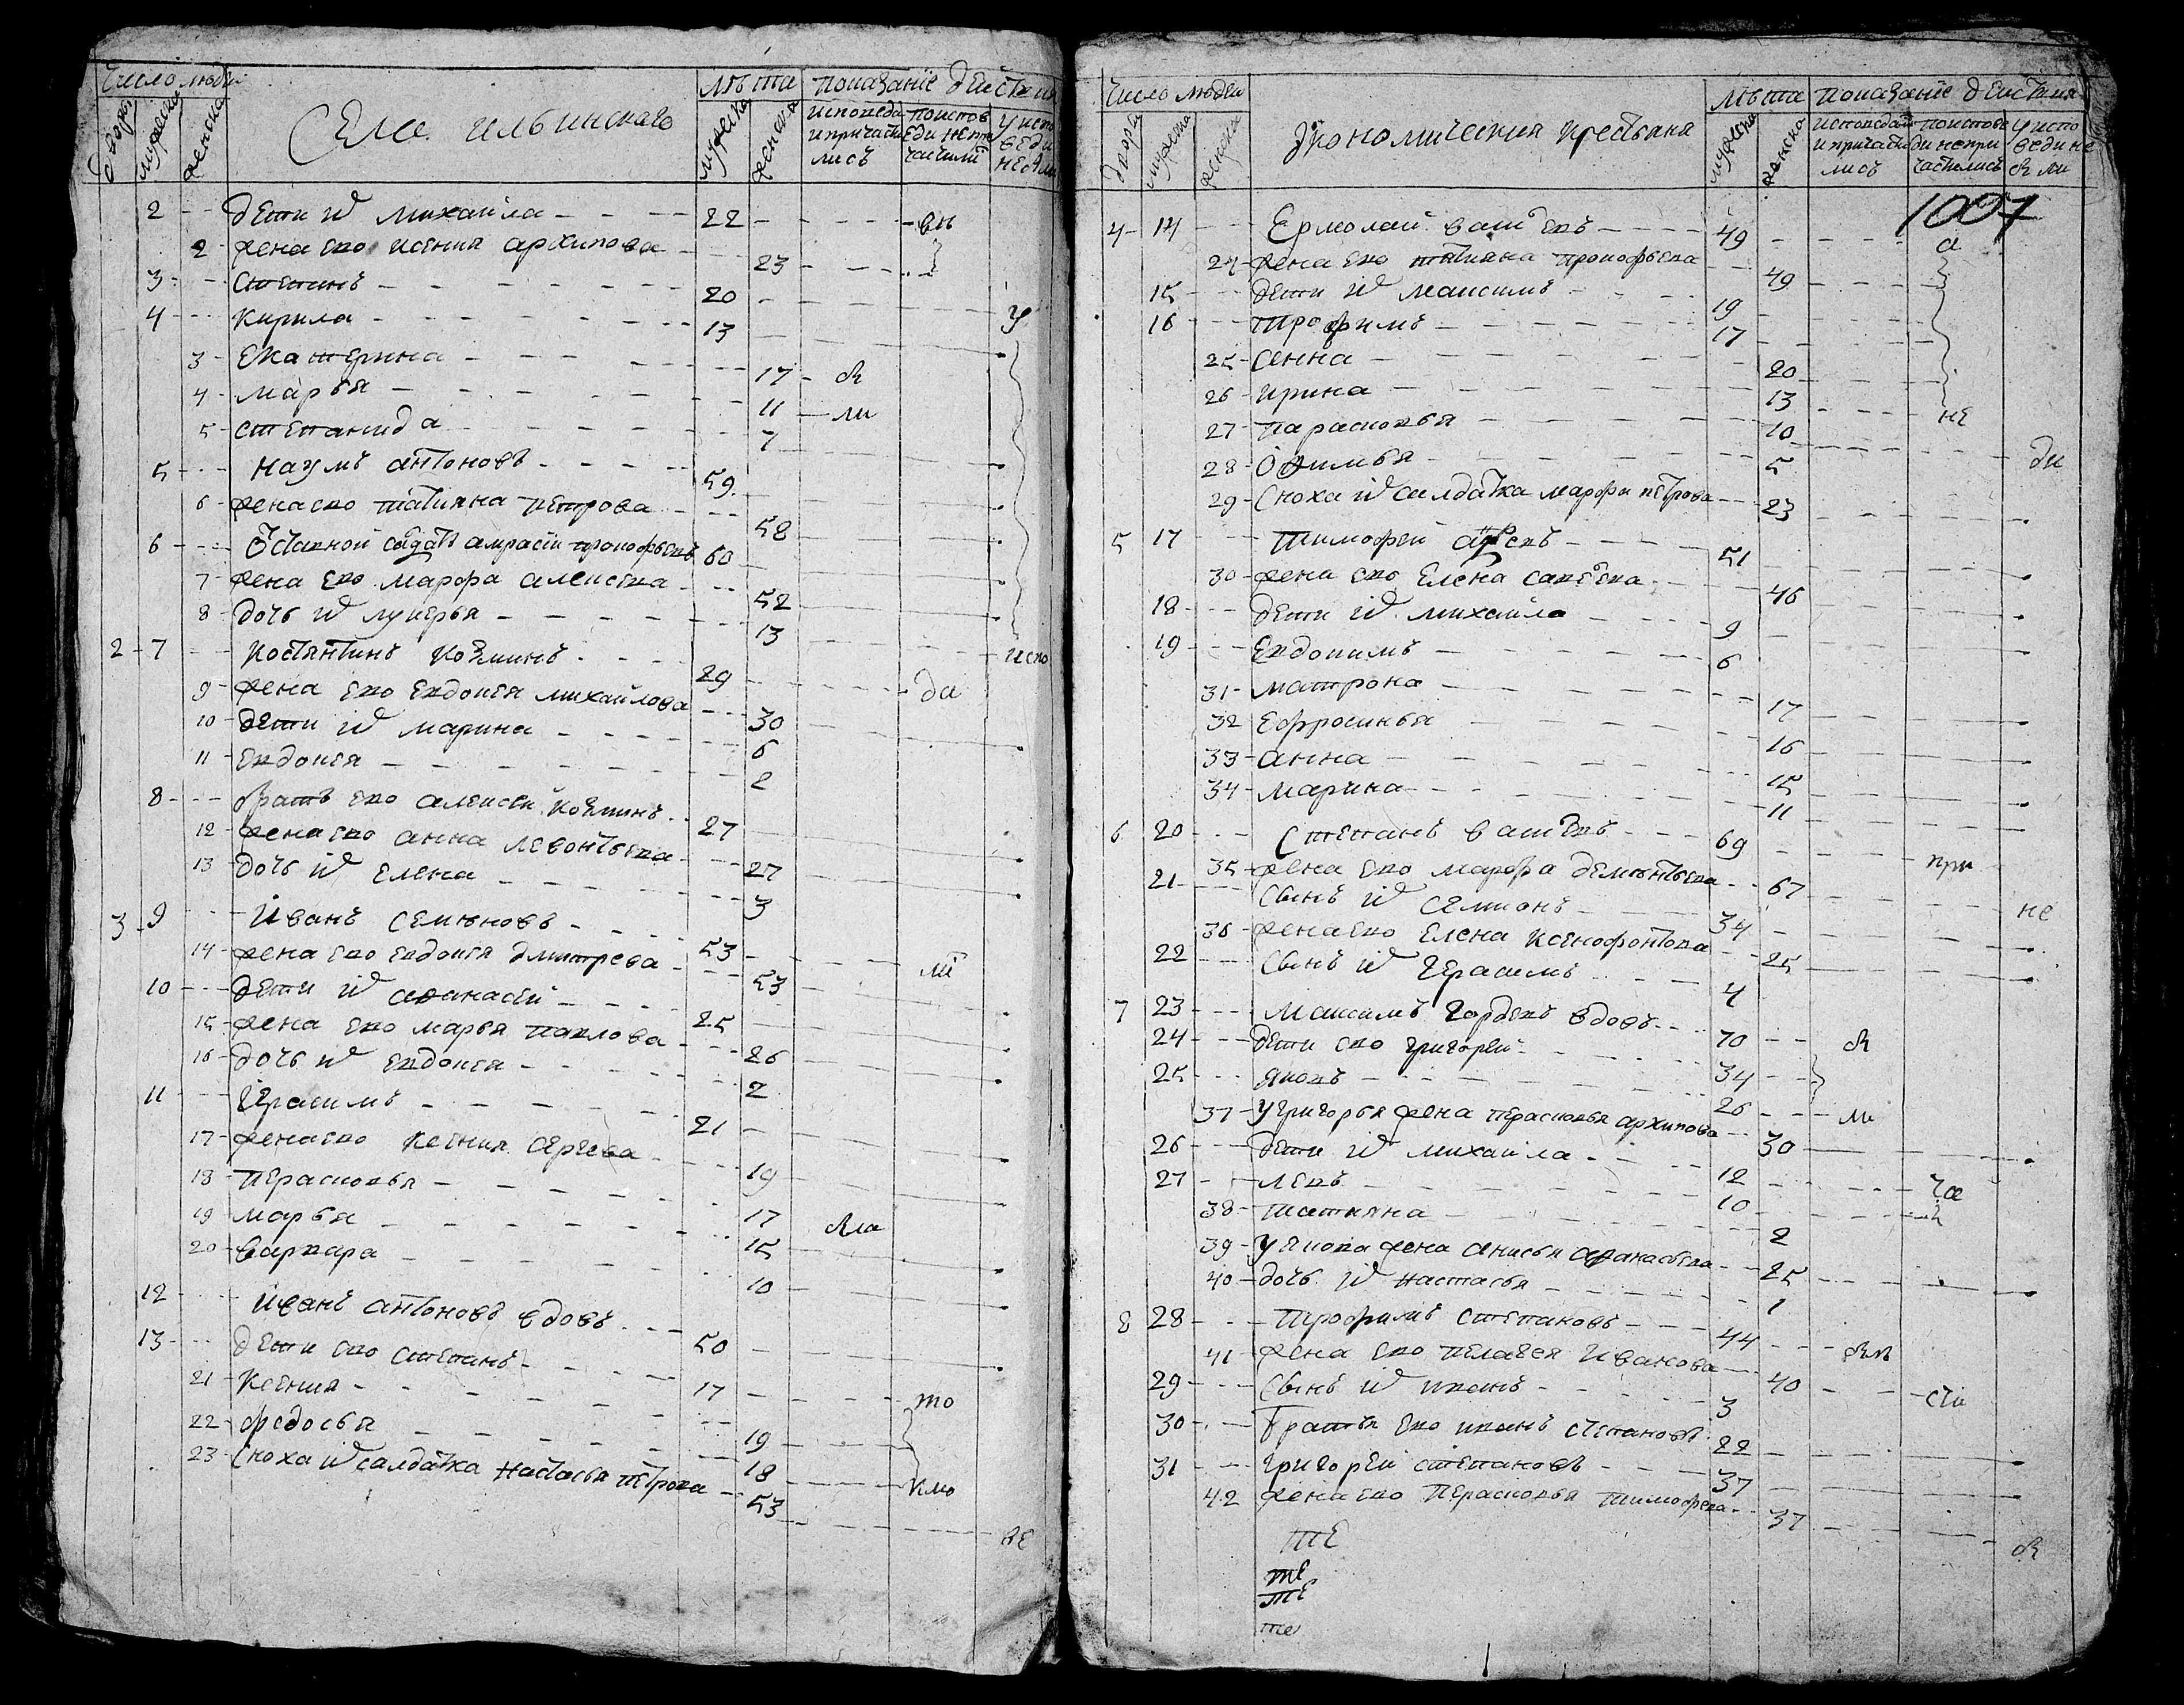 Число людей
двори
мужеска
женска
Села ильинскаго
мужеска
женска
Лѣта
показанїе действия
исповеда
и причасти
лись
у испо
веди
не
2 дети их михаила 22
2 жена ево ксения архипова 23
3 степанъ 20
4 кирила 13 у
3 Екатерина 17 бы
4 марья 11 ли
5 степанида 7
5 наумъ антоновъ 59
6 жена ево татияна петрова 58
6 Отставной салдатъ прокофьевъ 60
7 жена ево марфа алексева 52
8 дочь их лукерья 13
2 7 костянтинъ козминъ 29 испо
9 жена ево евдокея михайлова 30 да
10 дети их марина 6
11 евдокея 2
8 братъ ево алексей козминъ 27
12 жена ево анна левонтьева 27
13 дочь их елена 3
3 9 Иванъ семионовъ 53
14 жена ево евдокея дмитрева 53
10 дети их афанасей 25
15 жена ево марья павлова 26
16 дочь их евдокея 2
11 герасимъ 21
17 жена ево ксения сергева 19
18 перасковья 17
19 марья 15 бла
20 варвара 10
12 иванъ антоновъ вдовъ 50
13 дети ево степанъ 17
21 ксения 19 то
22 федосья 18
23 сноха их салдатка настасья петрова 53 кмо
ве
Число людей
двори
мужеска
женска
Экономическия крестьяня
Лѣта
мужеска
женска
показанїе действия
исповедали
и причасти
лись
по испове
ди не при
частились
у испо
веди не
были
1007
4 14 Ермолай васильевъ 49 а
24 жена ево татияна прокофьева 49
15 дети их максимъ 19
16 трофимъ 17
25 20
26 ирина 13
27 парасковья 10 не
28 Офимья 5 ди
29 сноха их салдатка марфа петрова 23
5 17 Тимофей 51
30 жена ево Елена савельева 46
18 дети их михаила 9
19 Евдокимъ 6
31 матрона 17
32 Ефросинья 16
33 анна 15
34 марина 11
6 20 Степанъ васильевъ 69
35 жена ево марфа дементьева 67 при
21 сынъ их семионъ 34 не
36 жена ево Елена ксенофонтова 25
22 сынъ их герасимъ 4
7 23 Максимъ гордевъ вдовъ 70 бы
24 дети ево григорей 34
25 яковъ 26 ли
37 у григорья жена перасковья архипова 30
26 дети их михаила 12
27 левъ 10 ча
38 татияна 2
39 у якова жена анисья афанасьева 25
40 дочь их настасья 1
8 28 трофимъ степановъ 44
41 жена ево пелагея иванова 40
29 сынъ их иванъ 3
30 братья ево иванъ степановъ 22
31 григорей степановъ 37
42 жена ево перасковья тимофева 37
бы
те
те
те
те